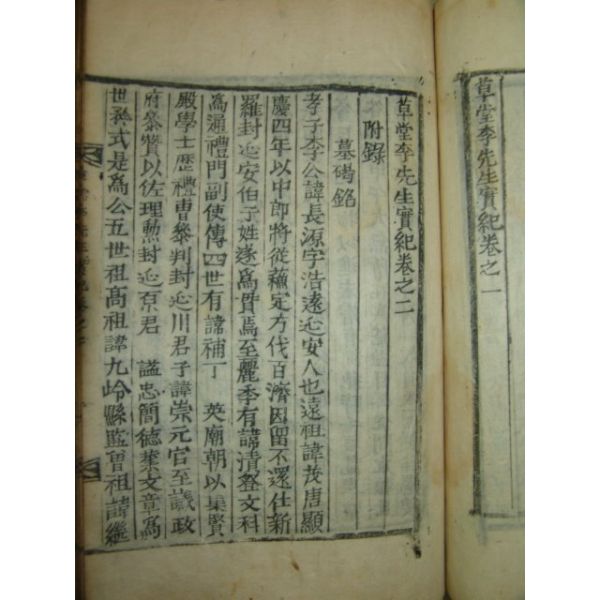 草堂李先生實紀卷之一
草堂李先生實紀卷之二
附錄
墓碣銘
孝子李公諱長源字浩遠延安人也遠祖諱茂唐顯
慶四年以中郎將從蘇定方伐百濟因留不還仕新
羅封延安伯子姓遂爲貫焉至麗季有諱清登文科
爲通禮門副使傳四世有諱補丁 英廟朝以集賢
殿學士歷禮曹參判封延川君子諱崇元官至議政
府參贊以佐理勳封延原君 謚忠簡德業文章爲
世矜式是爲公五世祖高祖諱九岭縣監曾祖諱繼